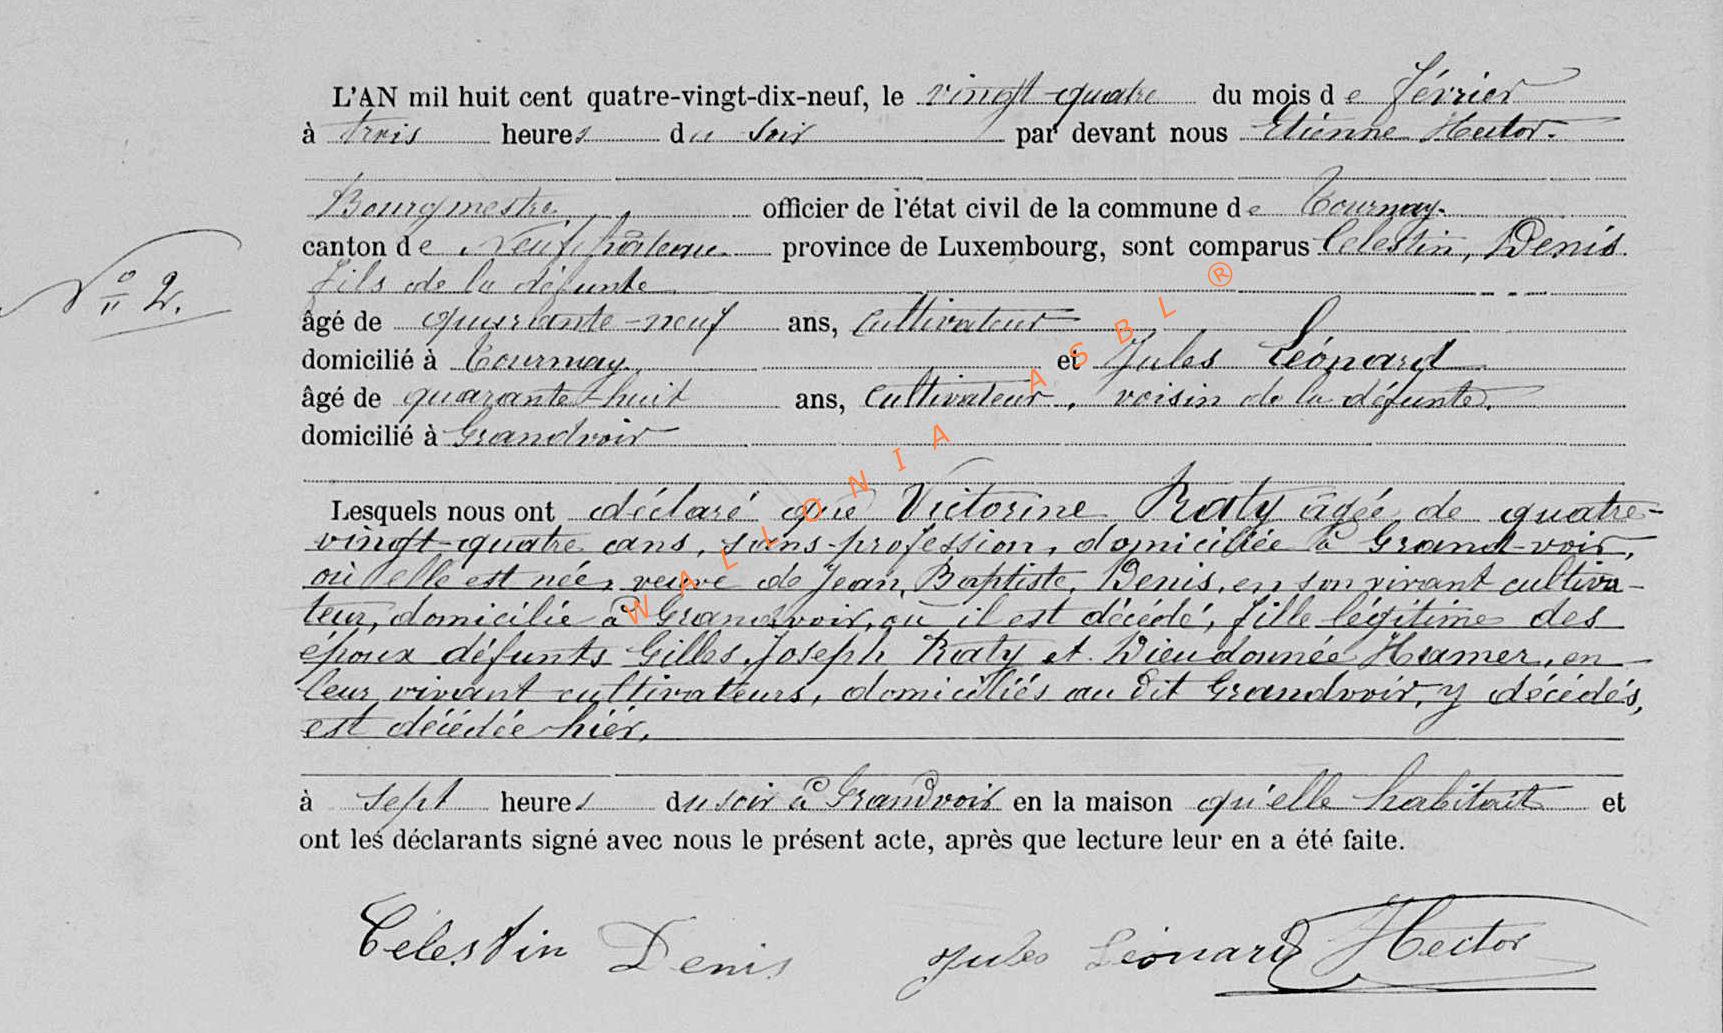 L'AN mil huit cent quatre-vingt-dix-neuf, le vingt-quatre du mois de février
à trois heures du soir par devant nous Etienne Hector.
Bourgmestre officier de l'état civil de la commune de Tournay.
canton de Neufchâteau province de Luxembourg, sont comparus Celestin, Denis
fils de la défunte
N° 2.
âgé de quarante-neuf ans, cultivateur
domicilié à Tournay. et Jules Léonard
âgé de quarante-huit ans, cultivateur, voisin de la défunte,
domicilié à Grandvoir
Lesquels nous ont déclaré que Victorine Raty âgée de quatre-
vingt-quatre ans, sans-profession, domiciliée à Grand-voir,
où elle est née, veuve de Jean, Baptiste, Denis, en son vivant cultiva-
teur, domicilié à Grandvoir, où il est décédé, fille légitime des
époux défunts Gilles, Joseph Raty et Dieudonnée Hamer, en
leur vivant cultivateurs, domiciliés au dit Grandvoir, y décédés,
est décédée hier,
à sept heures du soir à Grandvoir en la maison qu'elle habitait et
ont les déclarants signé avec nous le présent acte, après que lecture leur en a été faite.
Célestin Denis Jules Léonard Hector
WALLONIA ASBL ®